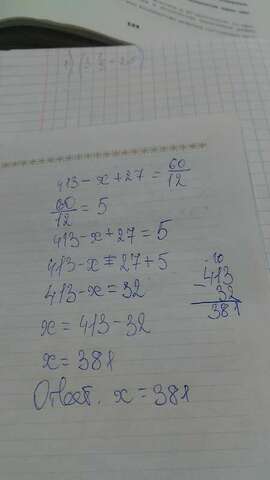 413 - x + 27 = 60/12
60/12 = 5
413 - x + 27 = 5
413 - x = 27 + 5
413 - x = 32
x = 413 - 32
x = 381
Ответ. x = 381
10
413
- 32
381